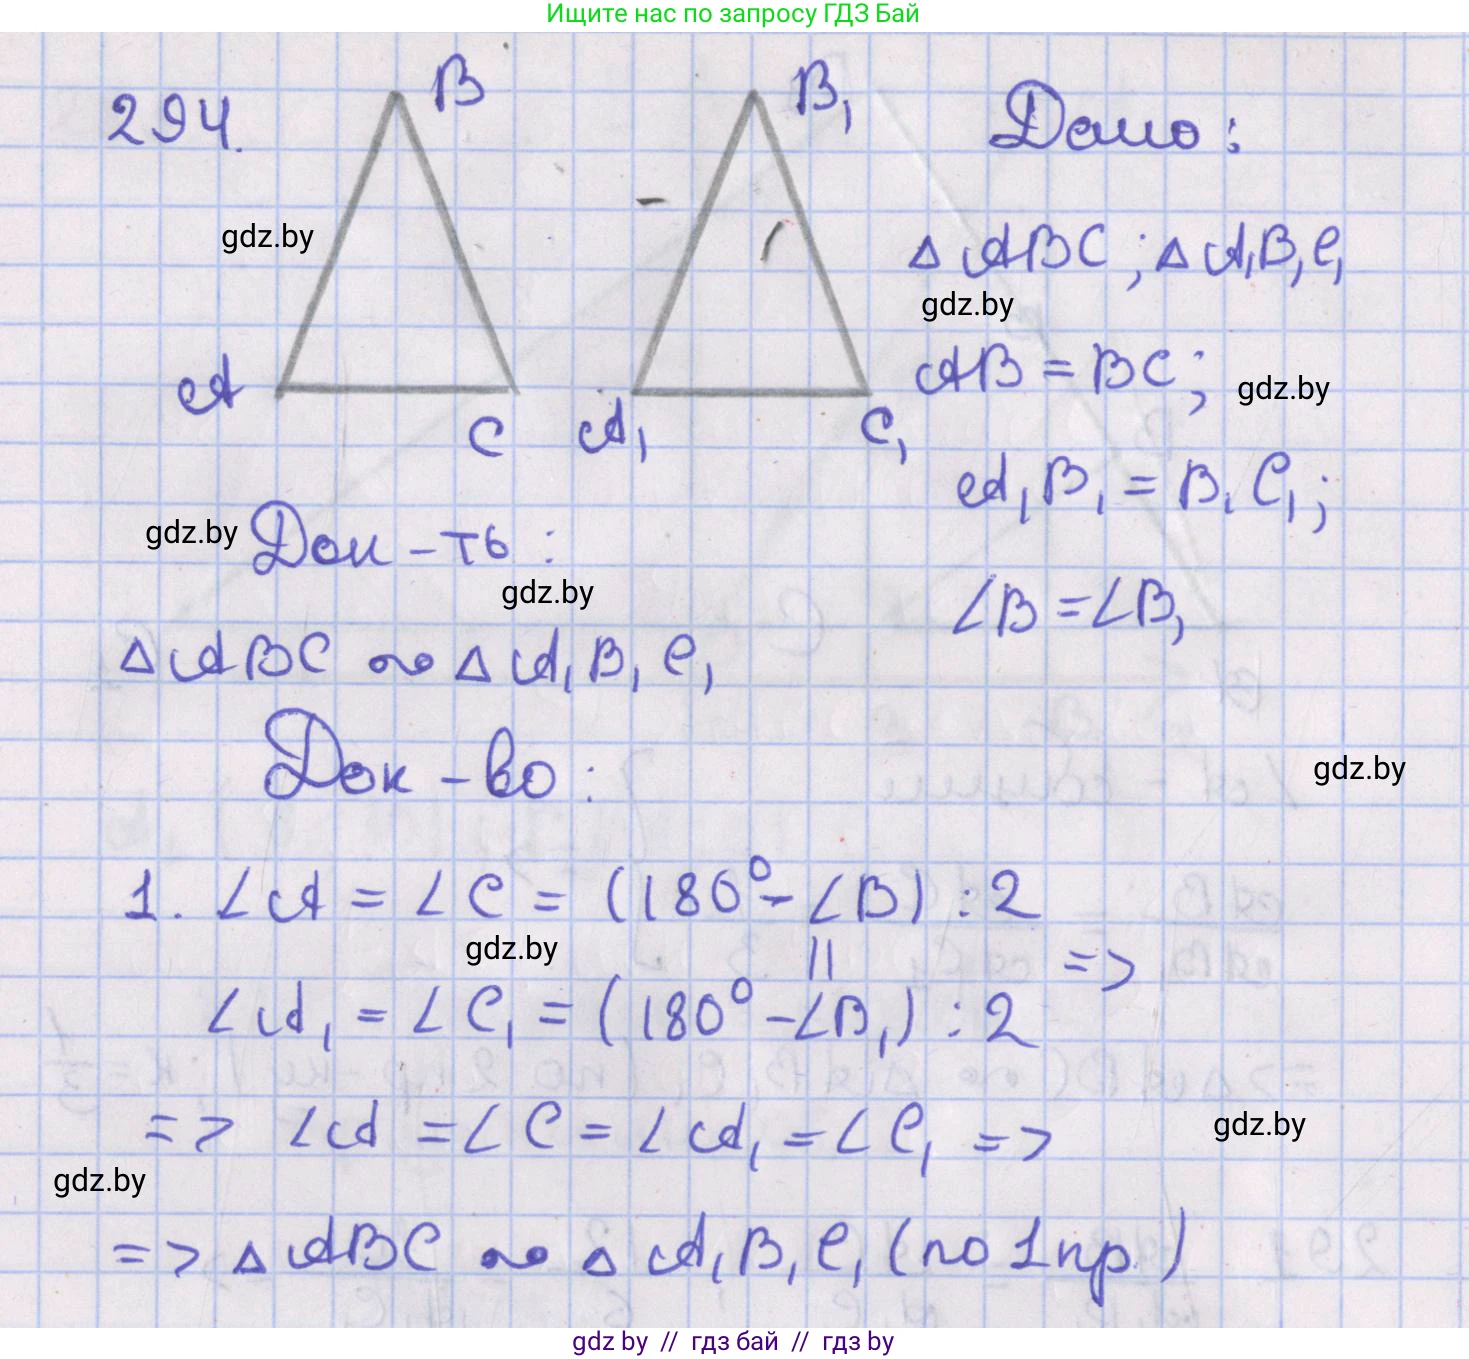 Ищите нас по запросу ГДЗ Бай
294.
B
B₁
Дано:
gdz.by
△ABC; △A₁B₁C₁
gdz.by
A
C
A₁
C₁
AB = BC;
gdz.by
A₁B₁ = B₁C₁;
gdz.by
Док-ть:
gdz.by
∠B = ∠B₁
△ABC ∾ △A₁B₁C₁
Док-во:
gdz.by
1. ∠A = ∠C = (180° - ∠B) : 2
gdz.by
|| =>
∠A₁ = ∠C₁ = (180° - ∠B₁) : 2
=> ∠A = ∠C = ∠A₁ = ∠C₁ =>
gdz.by
gdz.by
=> △ABC ∾ △A₁B₁C₁ (по 1 пр.)
gdz by // гдз бай // гдз by